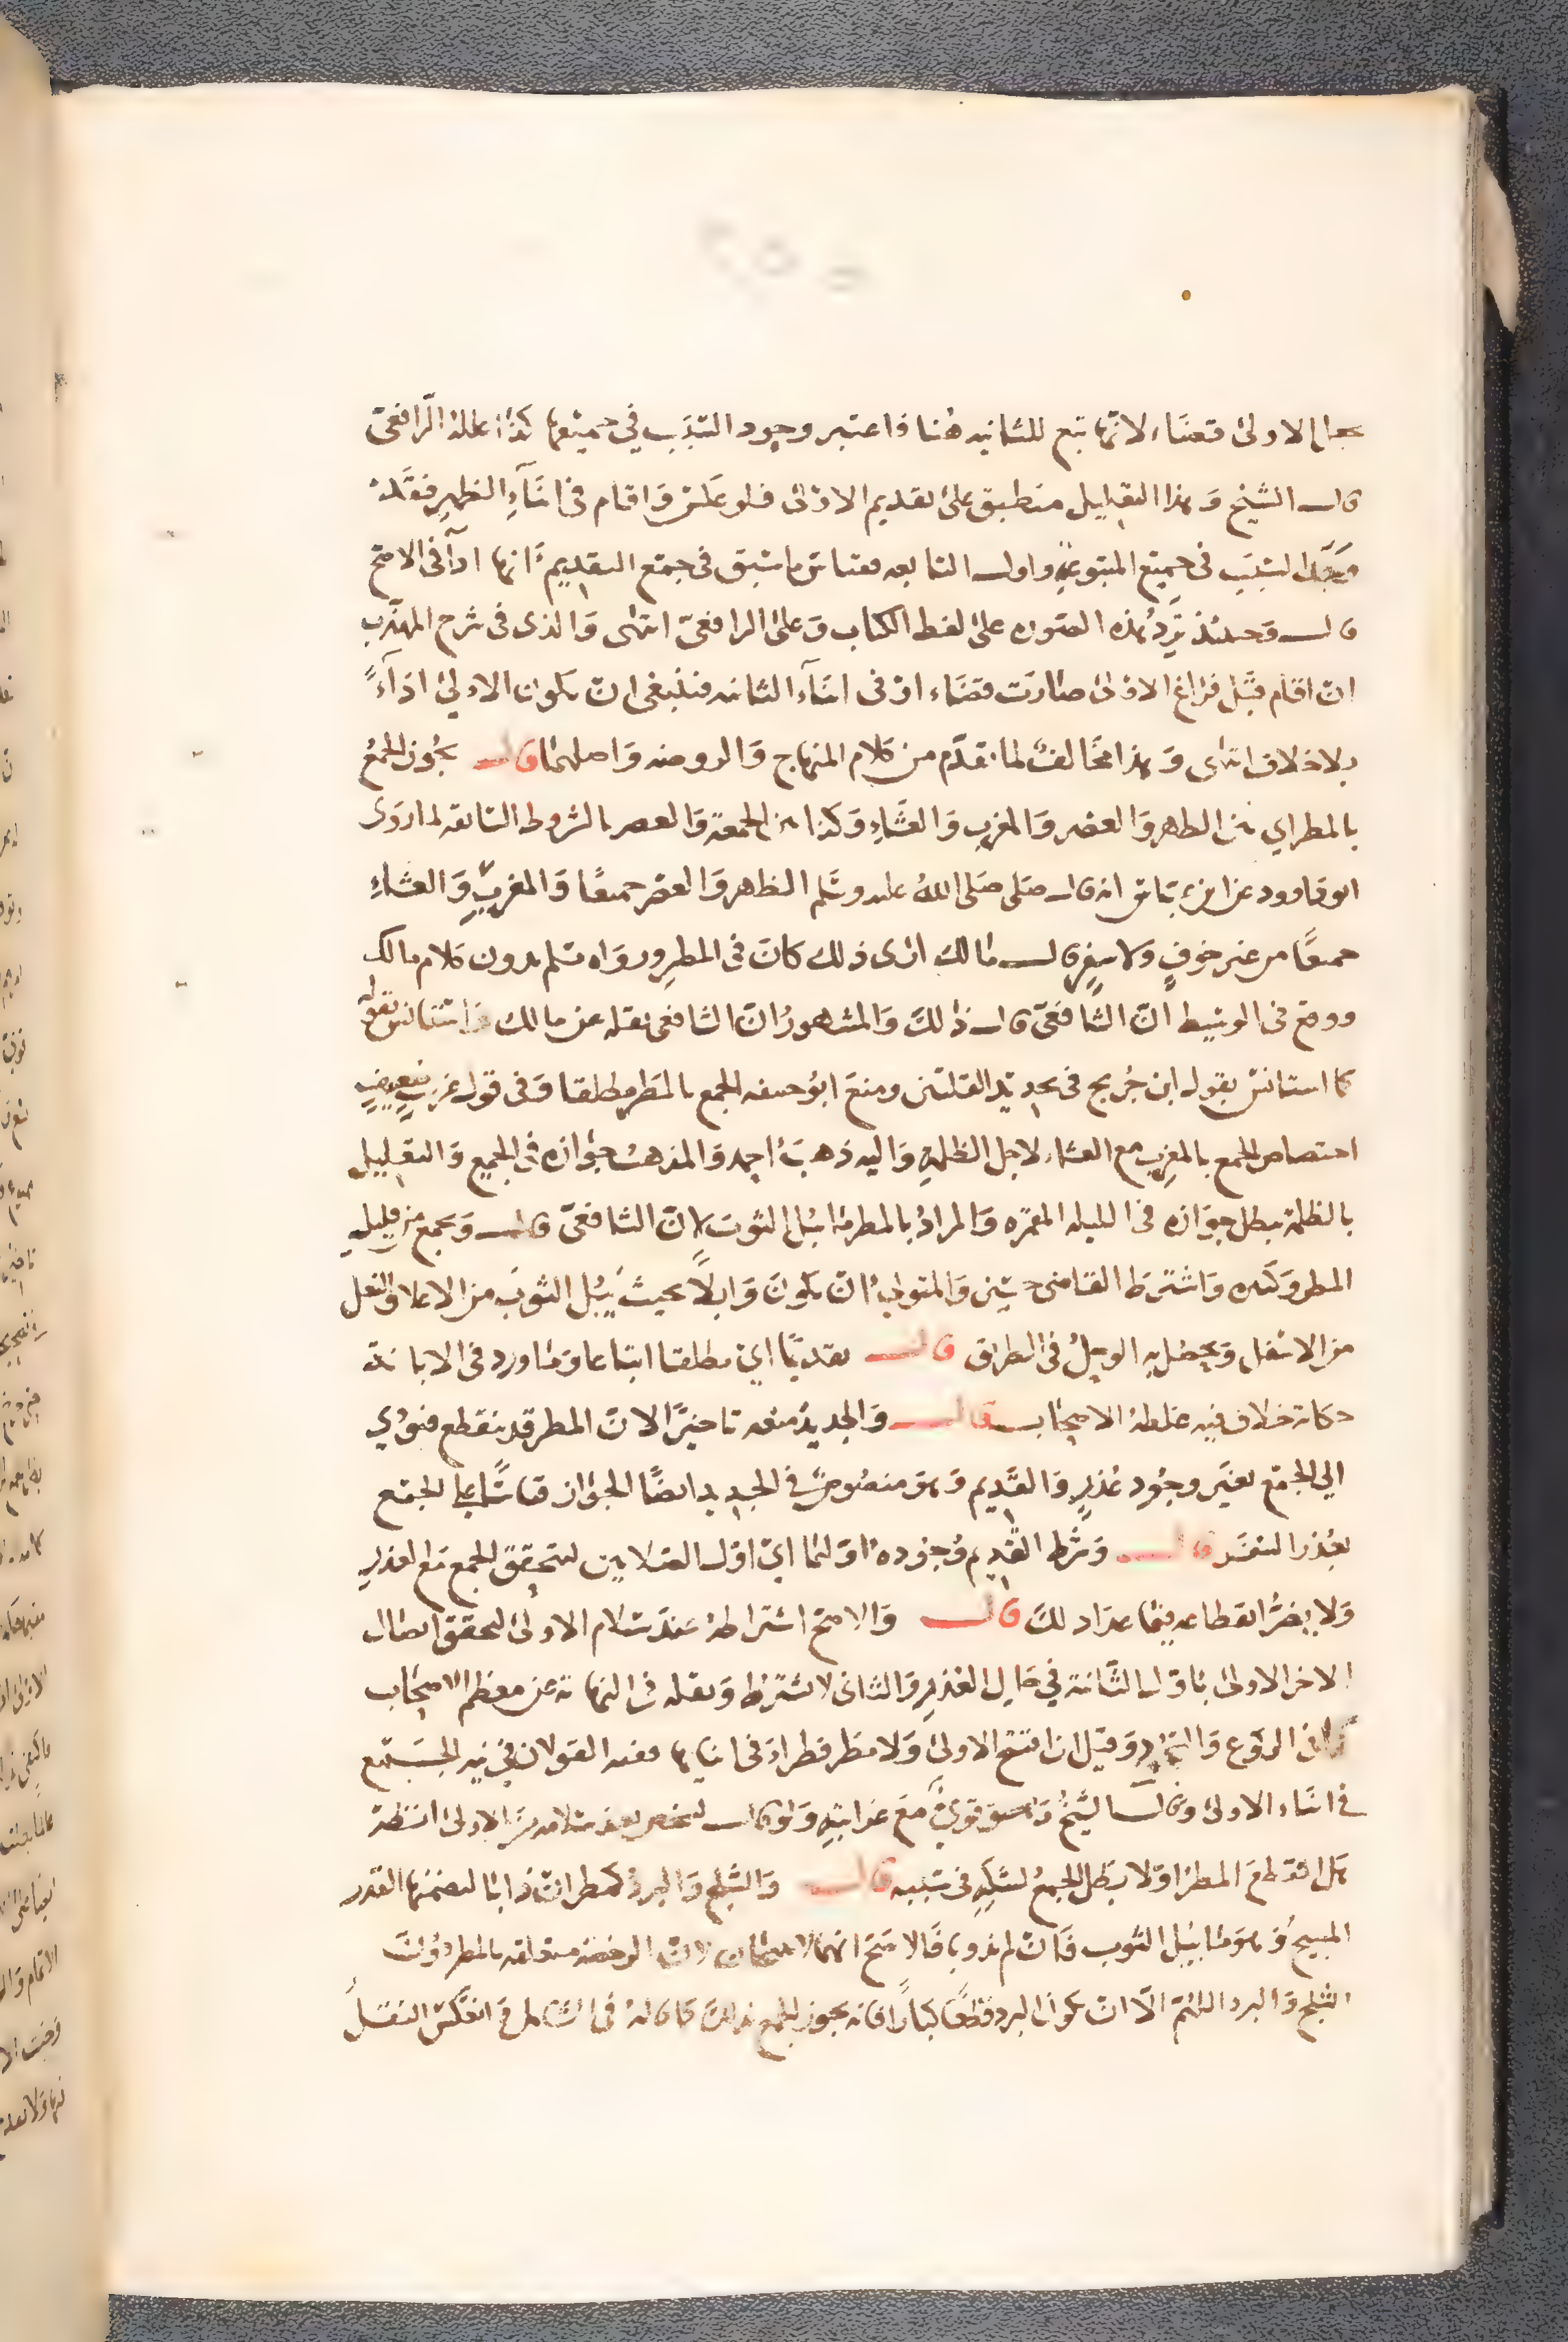 الاولى قضاء لانها تبع للثانيه هنا فاعتبر وجود السبب في جميعها كذا علله الرافعى
قال الشيخ وهذا التعليل منطبق على تقديم الاولى فلو عكس واقام في اثناء الظهر فقد
وجد السبب في جميع المتبوعة واول التابعه فقياس ما سبق في جمع التقديم انها ادآ في الاصح
قال وحينئذ ترد هذه الصوره على لفظ الكتاب وعلى الرافعى انتهى والذى في شرح المهذب
ان اقام قبل فراغ الاولى صارت قضاء او في اثنآ الثانيه فينبغى ان تكون الاولى ادآءً
بلا خلاف انتهى وهذا مخالف لما تقدم من كلام المنهاج والروضه واصلهما قال يجوز الجمع
بالمطر اي بين الظهر والعصر والمغرب والعشاء وكذا بين الجمعة والعصر بالشروط السابقه لما روى
ابو داوود عن ابن عباس انه قال صلى صلى الله عليه وسلم الظهر والعصر جميعا والمغرب والعشاء
جميعًا من غير خوف ولا سفر قال مالك ارى ذلك كان في المطر ورواه مسلم بدون كلام مالك
ووقع في الوسيط ان الشافعى قال ذلك والمشهور ان الشافعى نقله عن مالك فاستانس بقوله
كما استانس بقول ابن جريج في تحديد القلتين ومنع ابو حنيفه الجمع بالمطر مطلقا وفى قول غريب ضعيف
اختصاص الجمع بالمغرب مع العشاء لاجل الظلمة واليه ذهب احمد والمذهب جوازه في الجميع والتعليل
بالظلمة يبطل جوازه في الليله المقمره والمراد بالمطر ما يبل الثوب لان الشافعى قال ويجمع من قليل
المطر وكثيره واشترط القاضى حسين والمتولى ان يكون وابلاً بحيث يَبُل الثوب من الاعلا والنعل
من الاسفل ويحصل به الوحل في الطرق قال تقديمًا اي مطلقا اتباعا وما ورد في الابانة
حكاية خلاف فيه غلطه الاصحاب قال والجديد منعه تاخيرًا لان المطر قد ينقطع فيؤدي
الي الجمع بغير وجود عذر والقديم وهو منصوص في الجديد ايضًا الجواز قياسًا على الجمع
بعذر السفر قال وشرط التقديم وجوده اولهما اي اول الصلاتين ليتحقق الجمع مع العذر
ولا يضر انقطاعه فيما عدا ذلك قال والاصح اشتراطه عند سلام الاولى ليحقق اتصال
اخر الاولى باول الثانية في حال العذر والثانى لا يشترط ونقله في النهاية عن معظم الاصحاب
وقيل ان افتتح الاولى ولا مطر فطرا في اثنايها ففيه القولان في نيه الجمع
في اثناء الاولى وقال الشيخ وهو قوي مع غرابته ولو قال لشخص بعد سلامه من الاولى انظر
هل انقطع المطر او لا بطل الجمع لشكه في سببه قال والثلج والبرد كمطر ان ذابا لتضمنهما القدر
المبيح وهو ما يبل الثوب فان لم يذوبا فالاصح انهما لا يبيحان لان الرخصه متعلقه بالمطر دون
الثلج والبرد اللهم الا ان يكون البرد قطعًا كبارًا فانه يجوز الجمع بذلك كما قاله في الشامل وانعكس النقل